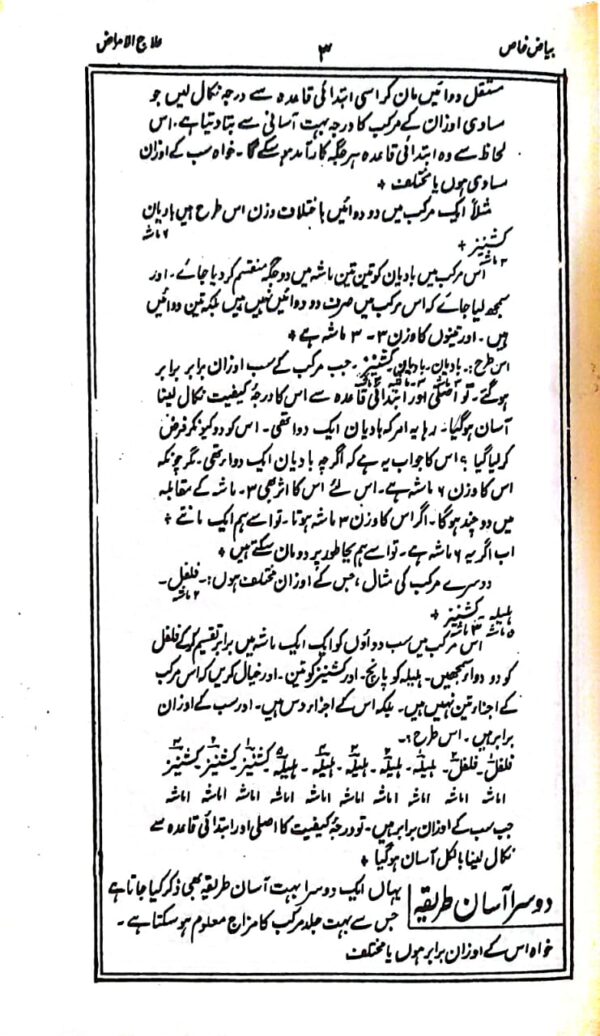 بیاض خاص ۳ علاج الامراض
مستقل دوائیں مان کر اسی ابتدائی قاعدہ سے درجہ نکال لیں جو
مساوی اوزان کے مرکب کا درجہ بہت آسانی سے بتا دیتا ہے۔ اس
لحاظ سے وہ ابتدائی قاعدہ ہر جگہ کارآمد ہو سکے گا۔ خواہ سب کے اوزان
مساوی ہوں یا مختلف +
مثلاً ایک مرکب میں دو دوائیں باختلاف وزن اس طرح ہیں بادیان
۶ ماشہ
کشنیز +
۳ ماشہ
اس مرکب میں بادیان کو تین تین ماشہ میں دو جگہ منقسم کر دیا جائے۔ اور
سمجھ لیا جائے کہ اس مرکب میں صرف دو دوائیں نہیں ہیں بلکہ تین دوائیں
ہیں۔ اور تینوں کا وزن ۳-۳ ماشہ ہے +
اس طرح:۔ بادیان۔ بادیان۔ کشنیز۔ جب مرکب کے سب اوزان برابر برابر
ہو گئے۔ تو اصلی اور ابتدائی قاعدہ سے اس کا درجۂ کیفیت نکال لینا
آسان ہو گیا۔ رہا یہ امر کہ بادیان ایک دوا تھی۔ اس کو دو کیونکر فرض
کر لیا گیا؟ اس کا جواب یہ ہے کہ اگرچہ بادیان ایک دوا تھی۔ مگر چونکہ
اس کا وزن ۶ ماشہ ہے۔ اس لئے اس کا اثر بھی ۳۔ ماشہ کے مقابلہ
میں دو چند ہو گا۔ اگر اس کا وزن ۳ ماشہ ہوتا۔ تو اسے ہم ایک مانتے +
اب اگر یہ ۶ ماشہ ہے۔ تو اسے ہم بجا طور پر دو مان سکتے ہیں +
دوسرے مرکب کی مثال، جس کے اوزان مختلف ہوں:۔ فلفل۔
۲ ماشہ
ہلیلہ۔ کشنیز +
۵ ماشہ ۳ ماشہ
اس مرکب میں سب دواؤں کو ایک ایک ماشہ میں برابر تقسیم کر کے فلفل
کو دو دوا سمجھیں۔ ہلیلہ کو پانچ۔ اور کشنیز کو تین۔ اور خیال کریں کہ اس مرکب
کے اجزاء تین نہیں ہیں۔ بلکہ اس کے اجزاء دس ہیں۔ اور سب کے اوزان
برابر ہیں۔ اس طرح:۔
فلفل۔ فلفل۔ ہلیلہ۔ ہلیلہ۔ ہلیلہ۔ ہلیلہ۔ ہلیلہ۔ کشنیز کشنیز کشنیز
۱ ماشہ ۱ ماشہ ۱ ماشہ ۱ ماشہ ۱ ماشہ ۱ ماشہ ۱ ماشہ ۱ ماشہ ۱ ماشہ ۱ ماشہ
جب سب کے اوزان برابر ہیں۔ تو درجۂ کیفیت کا اصلی اور ابتدائی قاعدہ سے
نکال لینا بالکل آسان ہو گیا +
دوسرا آسان طریقہ
یہاں ایک دوسرا بہت آسان طریقہ بھی ذکر کیا جاتا ہے
جس سے بہت جلد مرکب کا مزاج معلوم ہو سکتا ہے۔
خواہ اس کے اوزان برابر ہوں یا مختلف